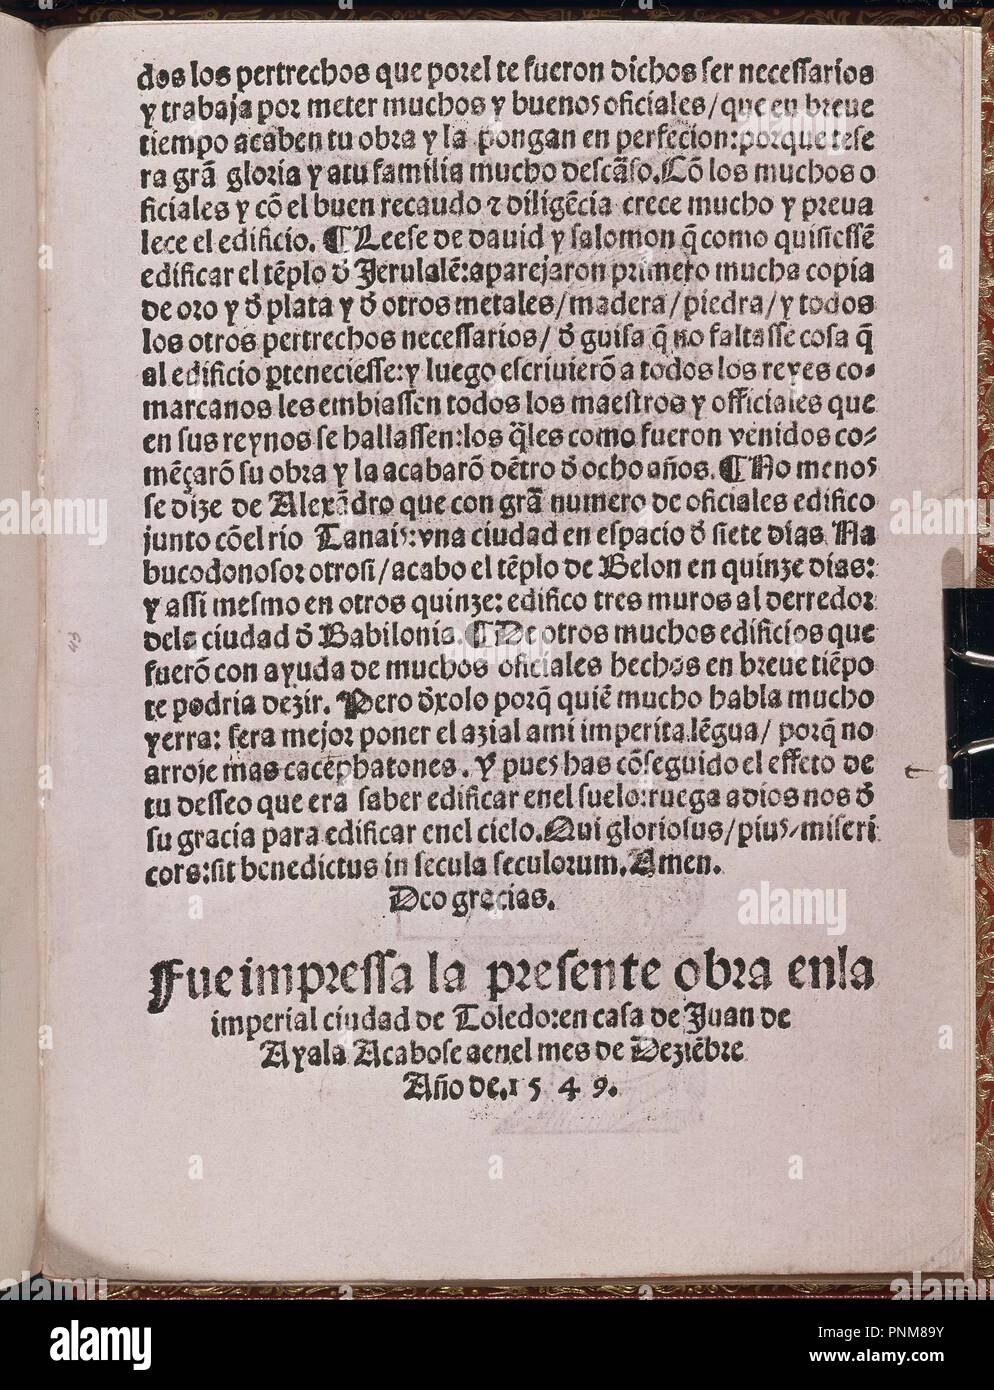 dos los pertrechos que porel te fueron dichos ser necessarios
y trabaja por meter muchos y buenos oficiales/que en breue
tiempo acaben tu obra y la pongan en perfecion:porque tese
ra grã gloria y atu familia mucho descãso.Cõ los muchos o
ficiales y cõ el buen recaudo ⁊ diligẽcia crece mucho y preua
lece el edificio. ¶ Leese de dauid y salomon q̃ como quisiessẽ
edificar el tẽplo d̃ Jerusalẽ:aparejaron primero mucha copia
de oro y d̃ plata y d̃ otros metales/madera/piedra/y todos
los otros pertrechos necessarios/ d̃ guisa q̃ no faltasse cosa q̃
al edificio ꝑteneciesse:y luego escriuierõ a todos los reyes co-
marcanos les embiassen todos los maestros y officiales que
en sus reynos se hallassen:los q̃les como fueron venidos co-
mẽçarõ su obra y la acabarõ dẽtro d̃ ocho años. ¶ No menos
se dize de Alexãdro que con grã numero de oficiales edifico
junto cõel rio Tanais:vna ciudad en espacio d̃ siete dias. Na
bucodonosor otrosi/acabo el tẽplo de Belon en quinze dias:
y assi mesmo en otros quinze: edifico tres muros al derredor
dela ciudad d̃ Babilonia. ¶ De otros muchos edificios que
fuerõ con ayuda de muchos oficiales hechos en breue tiẽpo
te podria dezir. Pero d̃xolo porq̃ quiẽ mucho habla mucho
yerra: sera mejor poner el azial ami imperita lẽgua/ porq̃ no
arroje mas cacephatones. Y pues has cõseguido el effeto de
tu desseo que era saber edificar enel suelo:ruega adios nos d̃
su gracia para edificar enel cielo.Qui gloriosus/pius/miseri
cors:sit benedictus in secula seculorum.Amen.
Deo gracias.
Fue impressa la presente obra enla
imperial ciudad de Toledo:en casa de Juan de
Ayala Acabose aenel mes de Deziẽbre
Año de.1549.
alamy
alamy
alamy
PNM89Y
www.alamy.com